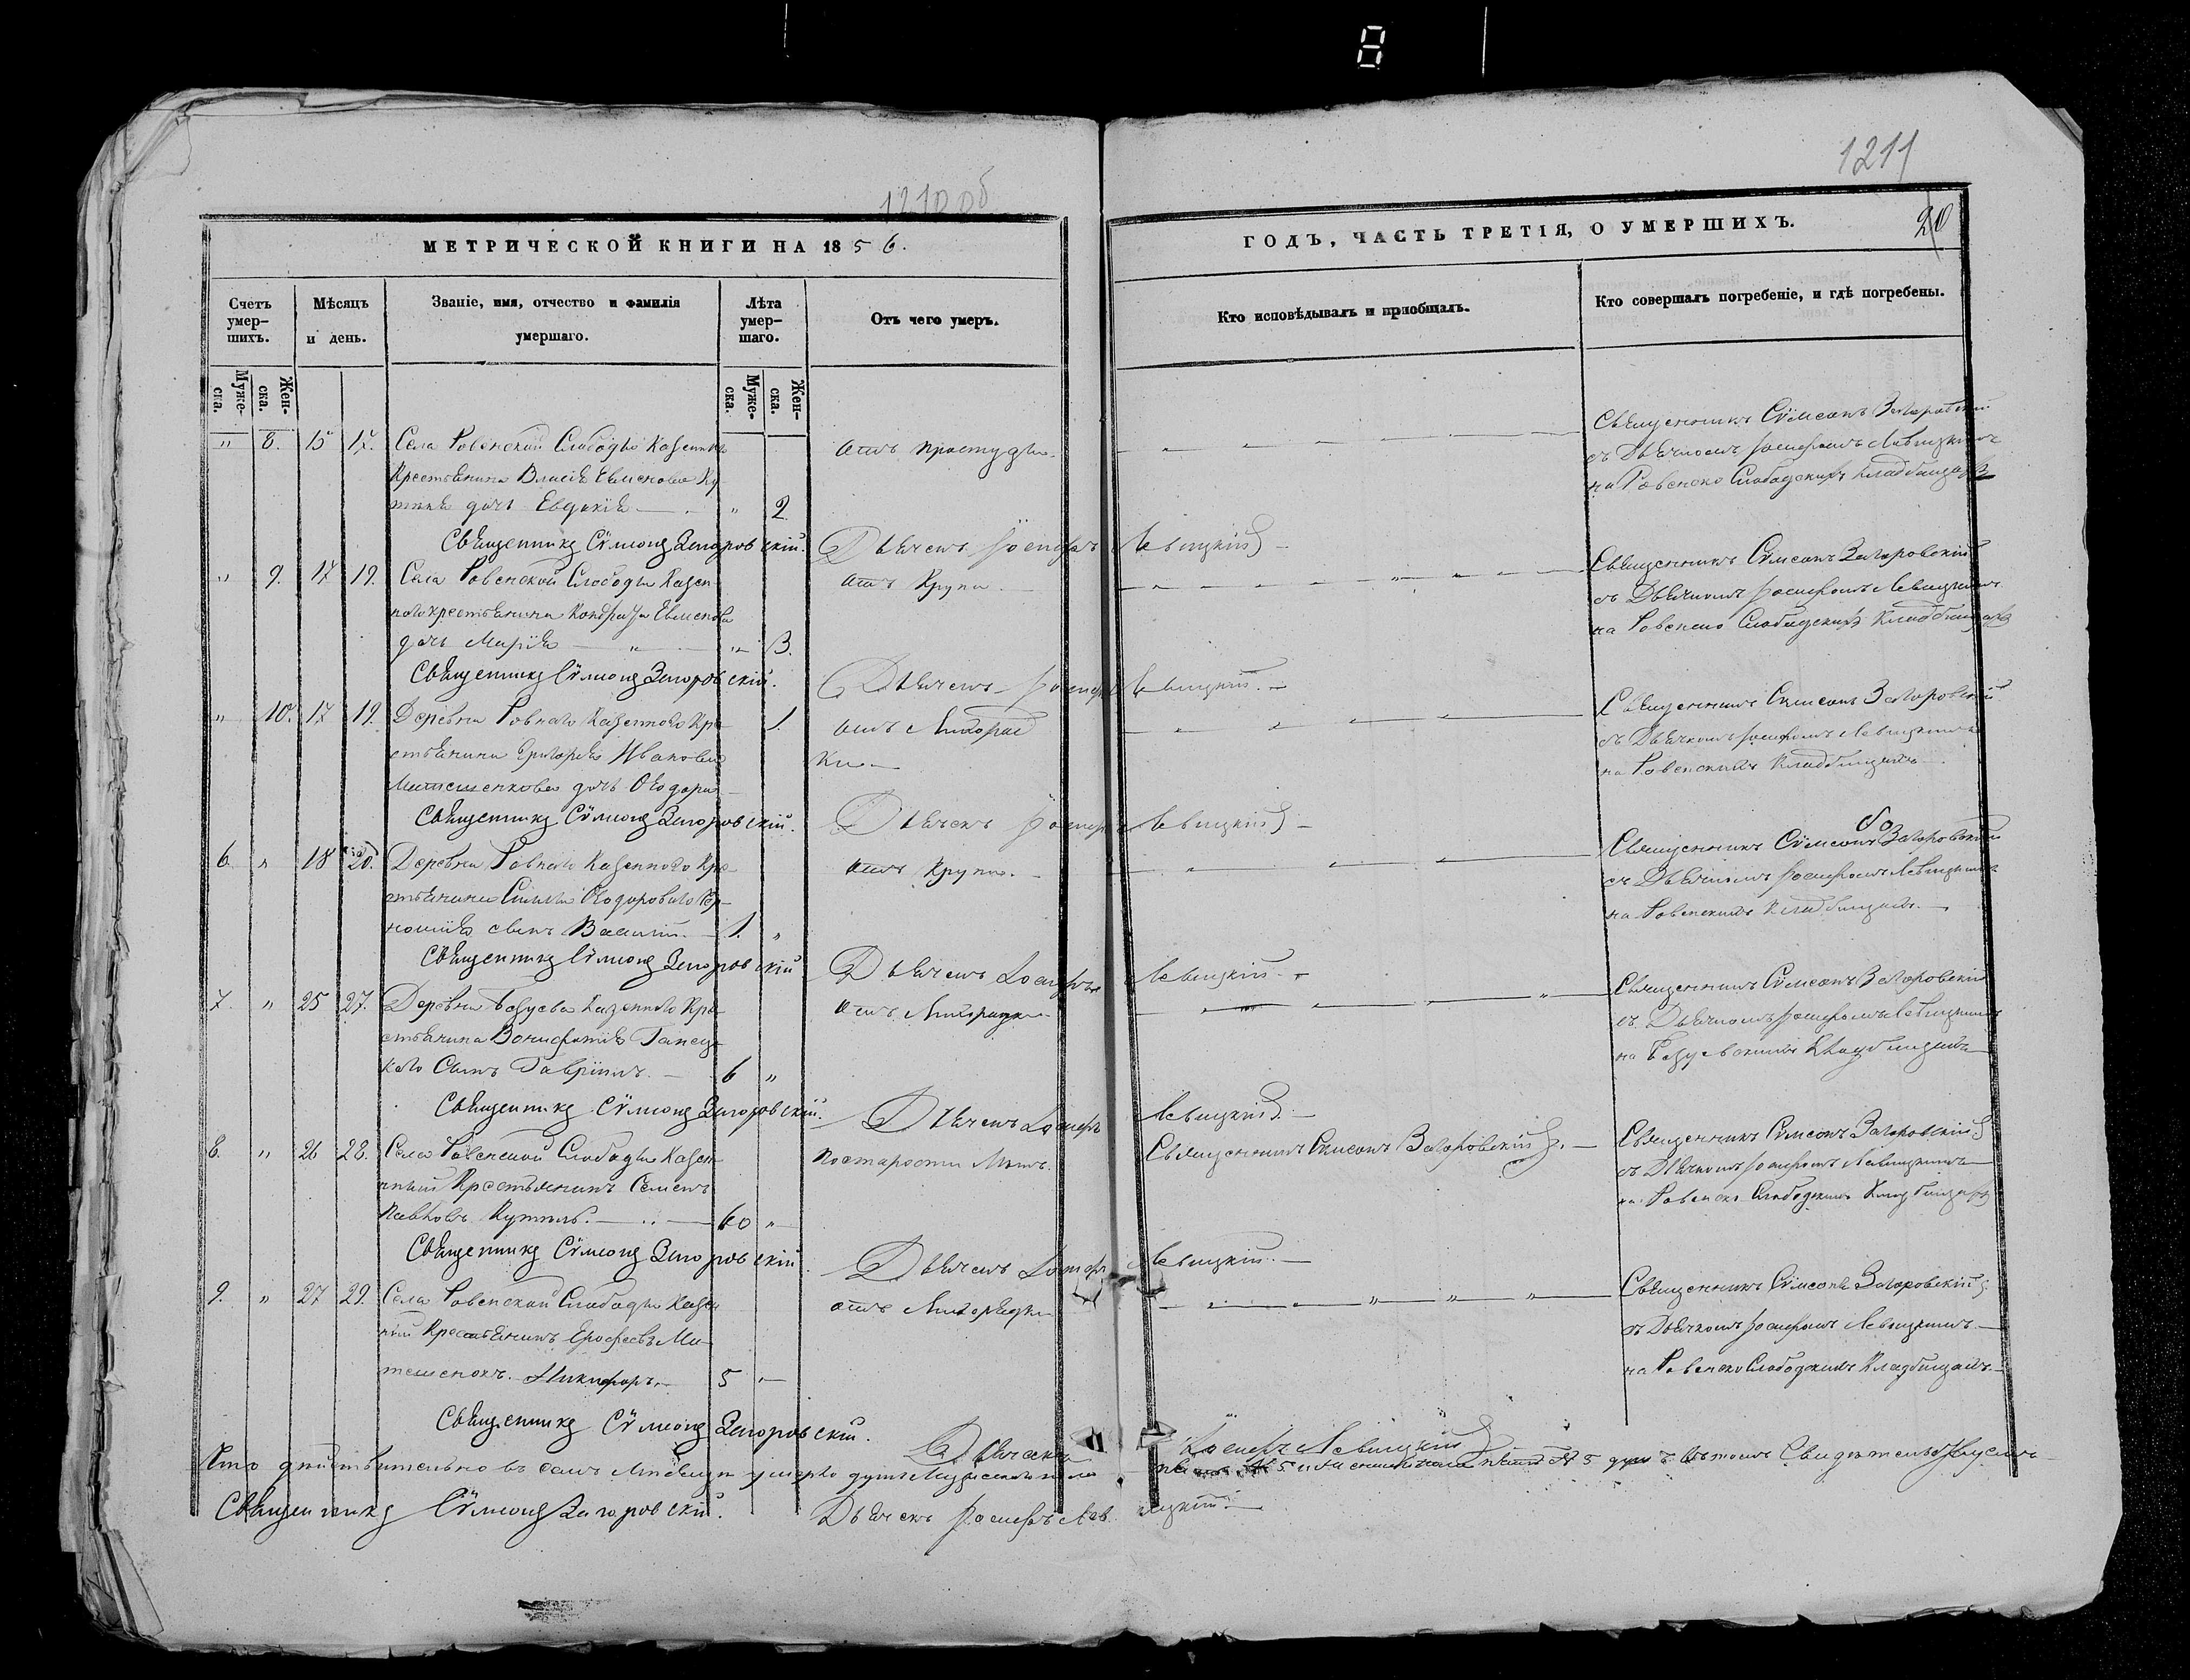 8
1210 об
1211
20
МЕТРИЧЕСКОЙ КНИГИ НА 1856.
ГОДЪ, ЧАСТЬ ТРЕТІЯ, О УМЕРШИХЪ.
Счетъ умер-шихъ.
Мѣсяцъ и день.
Званіе, имя, отчество и фамилія умершаго.
Лѣта умер-шаго.
Отъ чего умеръ.
Кто исповѣдывалъ и пріобщалъ.
Кто совершалъ погребеніе, и гдѣ погребены.
Муже-ска. Жен-ска.
Муже-ска. Жен-ска.
" 8. 15 17. Села Ровенской Слободы Казеннаго
Крестьянина Власія Евменова
дочь Евдокія " 2
отъ простуды.
Священникъ Сѵмеонъ Загоровскій
съ Дьячкомъ Іосифомъ Левицкимъ
на Ровенско Слободскихъ кладбищахъ
Священникъ Сѵмеонъ Загоровскій. Дьячекъ Іосифъ Левицкій
" 9. 17 19. Села Ровенской Слободы Казен-
наго крестьянина Кондрата Евменова
дочь Марія " 3.
отъ Крупа
Священникъ Сѵмеонъ Загоровскій
съ Дьячкомъ Іосифомъ Левицкимъ
на Ровенско Слободскихъ Кладбищахъ
Священникъ Сѵмеонъ Загоровскій. Дьячекъ Іосифъ Левицкій.
" 10. 17 19. Деревни Ровнаго Казеннаго Кре- 1.
стьянина Григорія Иванова
Митешенкова дочь Ѳеодора
отъ Лихорад
ки
Священникъ Симеонъ Загоровскій
съ Дьячкомъ Іосифомъ Левицкимъ
на Ровенскихъ Кладбищахъ
Священникъ Сѵмеонъ Загоровскій. Дьячекъ Іосифъ Левицкій
6 " 18 20. Деревни Ровнаго Казеннаго Кре-
стьянина Ѳеодорова
сынъ Василій. 1. "
отъ Крупа.
Священникъ Сѵмеонъ Загоровскій
съ Дьячкомъ Іосифомъ Левицкимъ
на Ровенскихъ Кладбищахъ.
Священникъ Сѵмеонъ Загоровскій Дьячекъ Іосифъ Левицкій.
7. " 25 27. Деревни Безуева Казеннаго Кре-
стьянина Вонифатія Ганец-
каго Сынъ Гавріилъ. 6 "
отъ Лихорадки
Священникъ Сѵмеонъ Загоровскій
съ Дьячкомъ Іосифомъ Левицкимъ
на Безуевскихъ Кладбищахъ
Священникъ Сѵмеонъ Загоровскій. Дьячекъ Іосифъ Левицкій.
8. " 26 28. Села Ровенской Слободы Казен-
ный Крестьянинъ Семенъ
Павловъ 60 "
по старости лѣтъ.
Священникъ Симеонъ Загоровскій.
Священникъ Сѵмеонъ Загоровскій
съ Дьячкомъ Іосифомъ Левицкимъ
на Ровенско Слободскихъ Кладбищахъ
Священникъ Сѵмеонъ Загоровскій. Дьячекъ Іосифъ Левицкій.
9. " 27 29. Села Ровенской Слободы Казен
ный Крестьянинъ Ерофеевъ Ми-
тешенокъ. Никифоръ. 5 "
отъ Лихорадки
Священникъ Сѵмеонъ Загоровскій
съ Дьячкомъ Іосифомъ Левицкимъ.
на Ровенско Слободскихъ Кладбищахъ.
Священникъ Сѵмеонъ Загоровскій. Дьячекъ Іосифъ Левицкій
Что дѣйствительно въ семъ мѣсяцѣ умерло душъ Мужескаго пола 5 и 5 въ томъ Свидѣтельствуемъ
Священникъ Сѵмеонъ Загоровскій. Дьячекъ Іосифъ Левицкій.